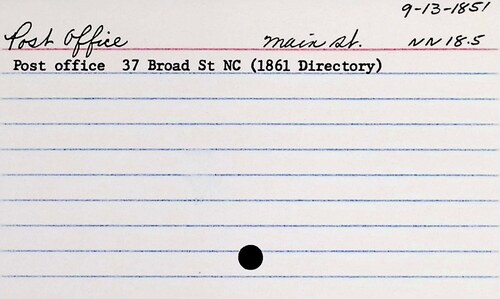 9-13-1851
Post Office Main St. NN 18.5
Post office 37 Broad St NC (1861 Directory)